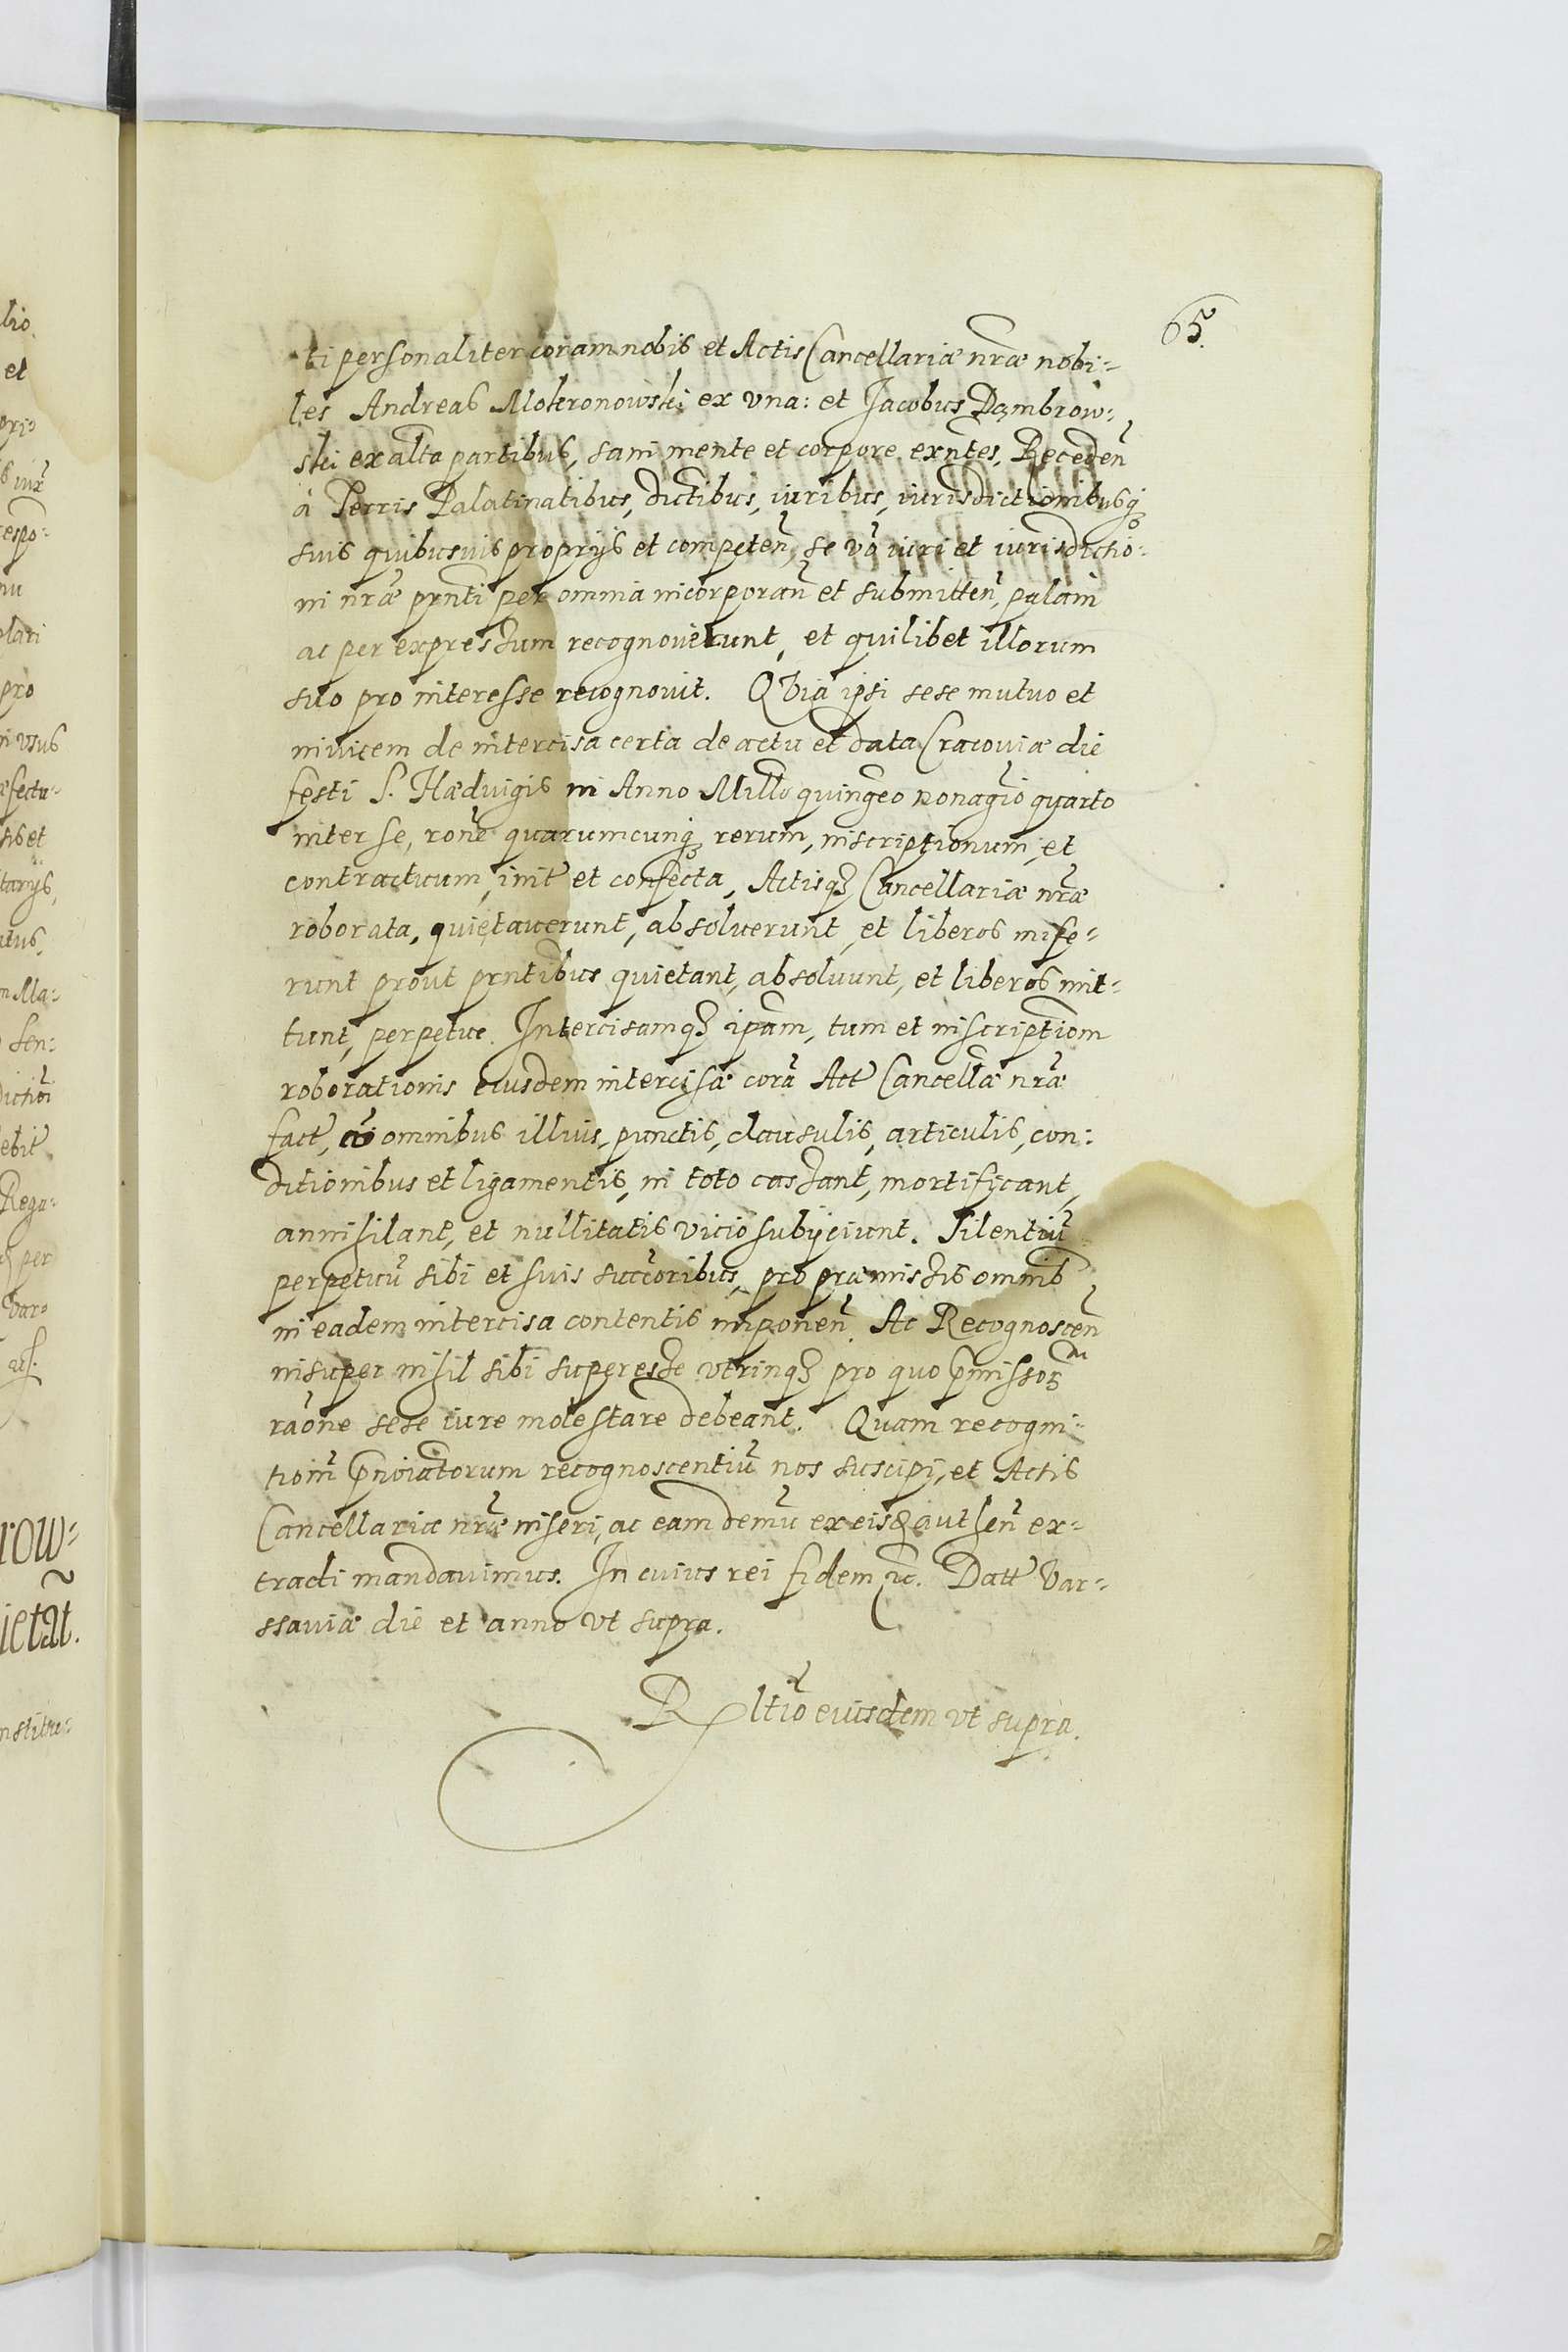 65.
ti personaliter coram nobis et Actis Cancellariæ nr̃æ nobi=
les Andreas Mokronowski ex vna: et Jacobus Dąmbrow=
ski ex alta partibus, sani mente et corpore exñtes, Recedeñ
à Terris Palatinatibus, dictibus, iuribus, iurisdictionibusq3
suis quibusuis proprijs et competeñ, se vō iuri et iurisdictio=
ni nr̃æ pr̃nti per omnia incorporañ et submitteñ, palam
ac per expressum recognouerunt, et quilibet illorum
suo pro interesse recognouit. Quia ipsi sese mutuo et
inuicem de intercisa certa de actu et data Cracouiæ die
festi S. Hæduigis in Anno Millo quingeo nonagio quarto
inter se, rone quarumcunq3 rerum, inscriptionum, et
contractuum, init̃ et confecta, Actisq3 Cancellariæ nr̃æ
roborata, quietauerunt, absoluerunt, et liberos mise=
runt prout pr̃ntibus quietant, absoluunt, et liberos mit=
tunt, perpetue. Intercisamq3 ipsam, tum et inscriptiom
roborationis eiusdem intercisæ corã Act̃ Cancellæ nr̃æ
fact̃, cũ omnibus illius, punctis, clausulis, articulis, con=
ditionibus et ligamentis, in toto cassant, mortificant,
annihilant, et nullitatis vicio subijciunt. Silentiũ
perpetuũ sibi et suis succoribus, pro præmissis omnib
in eadem intercisa contentis imponeñ. Ac Recognosceñ
insuper nihil sibi superesse vtrinq3 pro quo p̃missoꝝ
raone sese iure molestare debeant. Quam recogni=
tiom̃ p̃noiatorum recognoscentiũ nos suscipi, et Actis
Cancellariæ nr̃æ inseri, ac eam demũ ex eisd autheñ ex=
tradi mandauimus. In cuius rei fidem etc. Datt Var=
ssauiæ die et anno vt supra.
Rltio eiusdem vt supra.